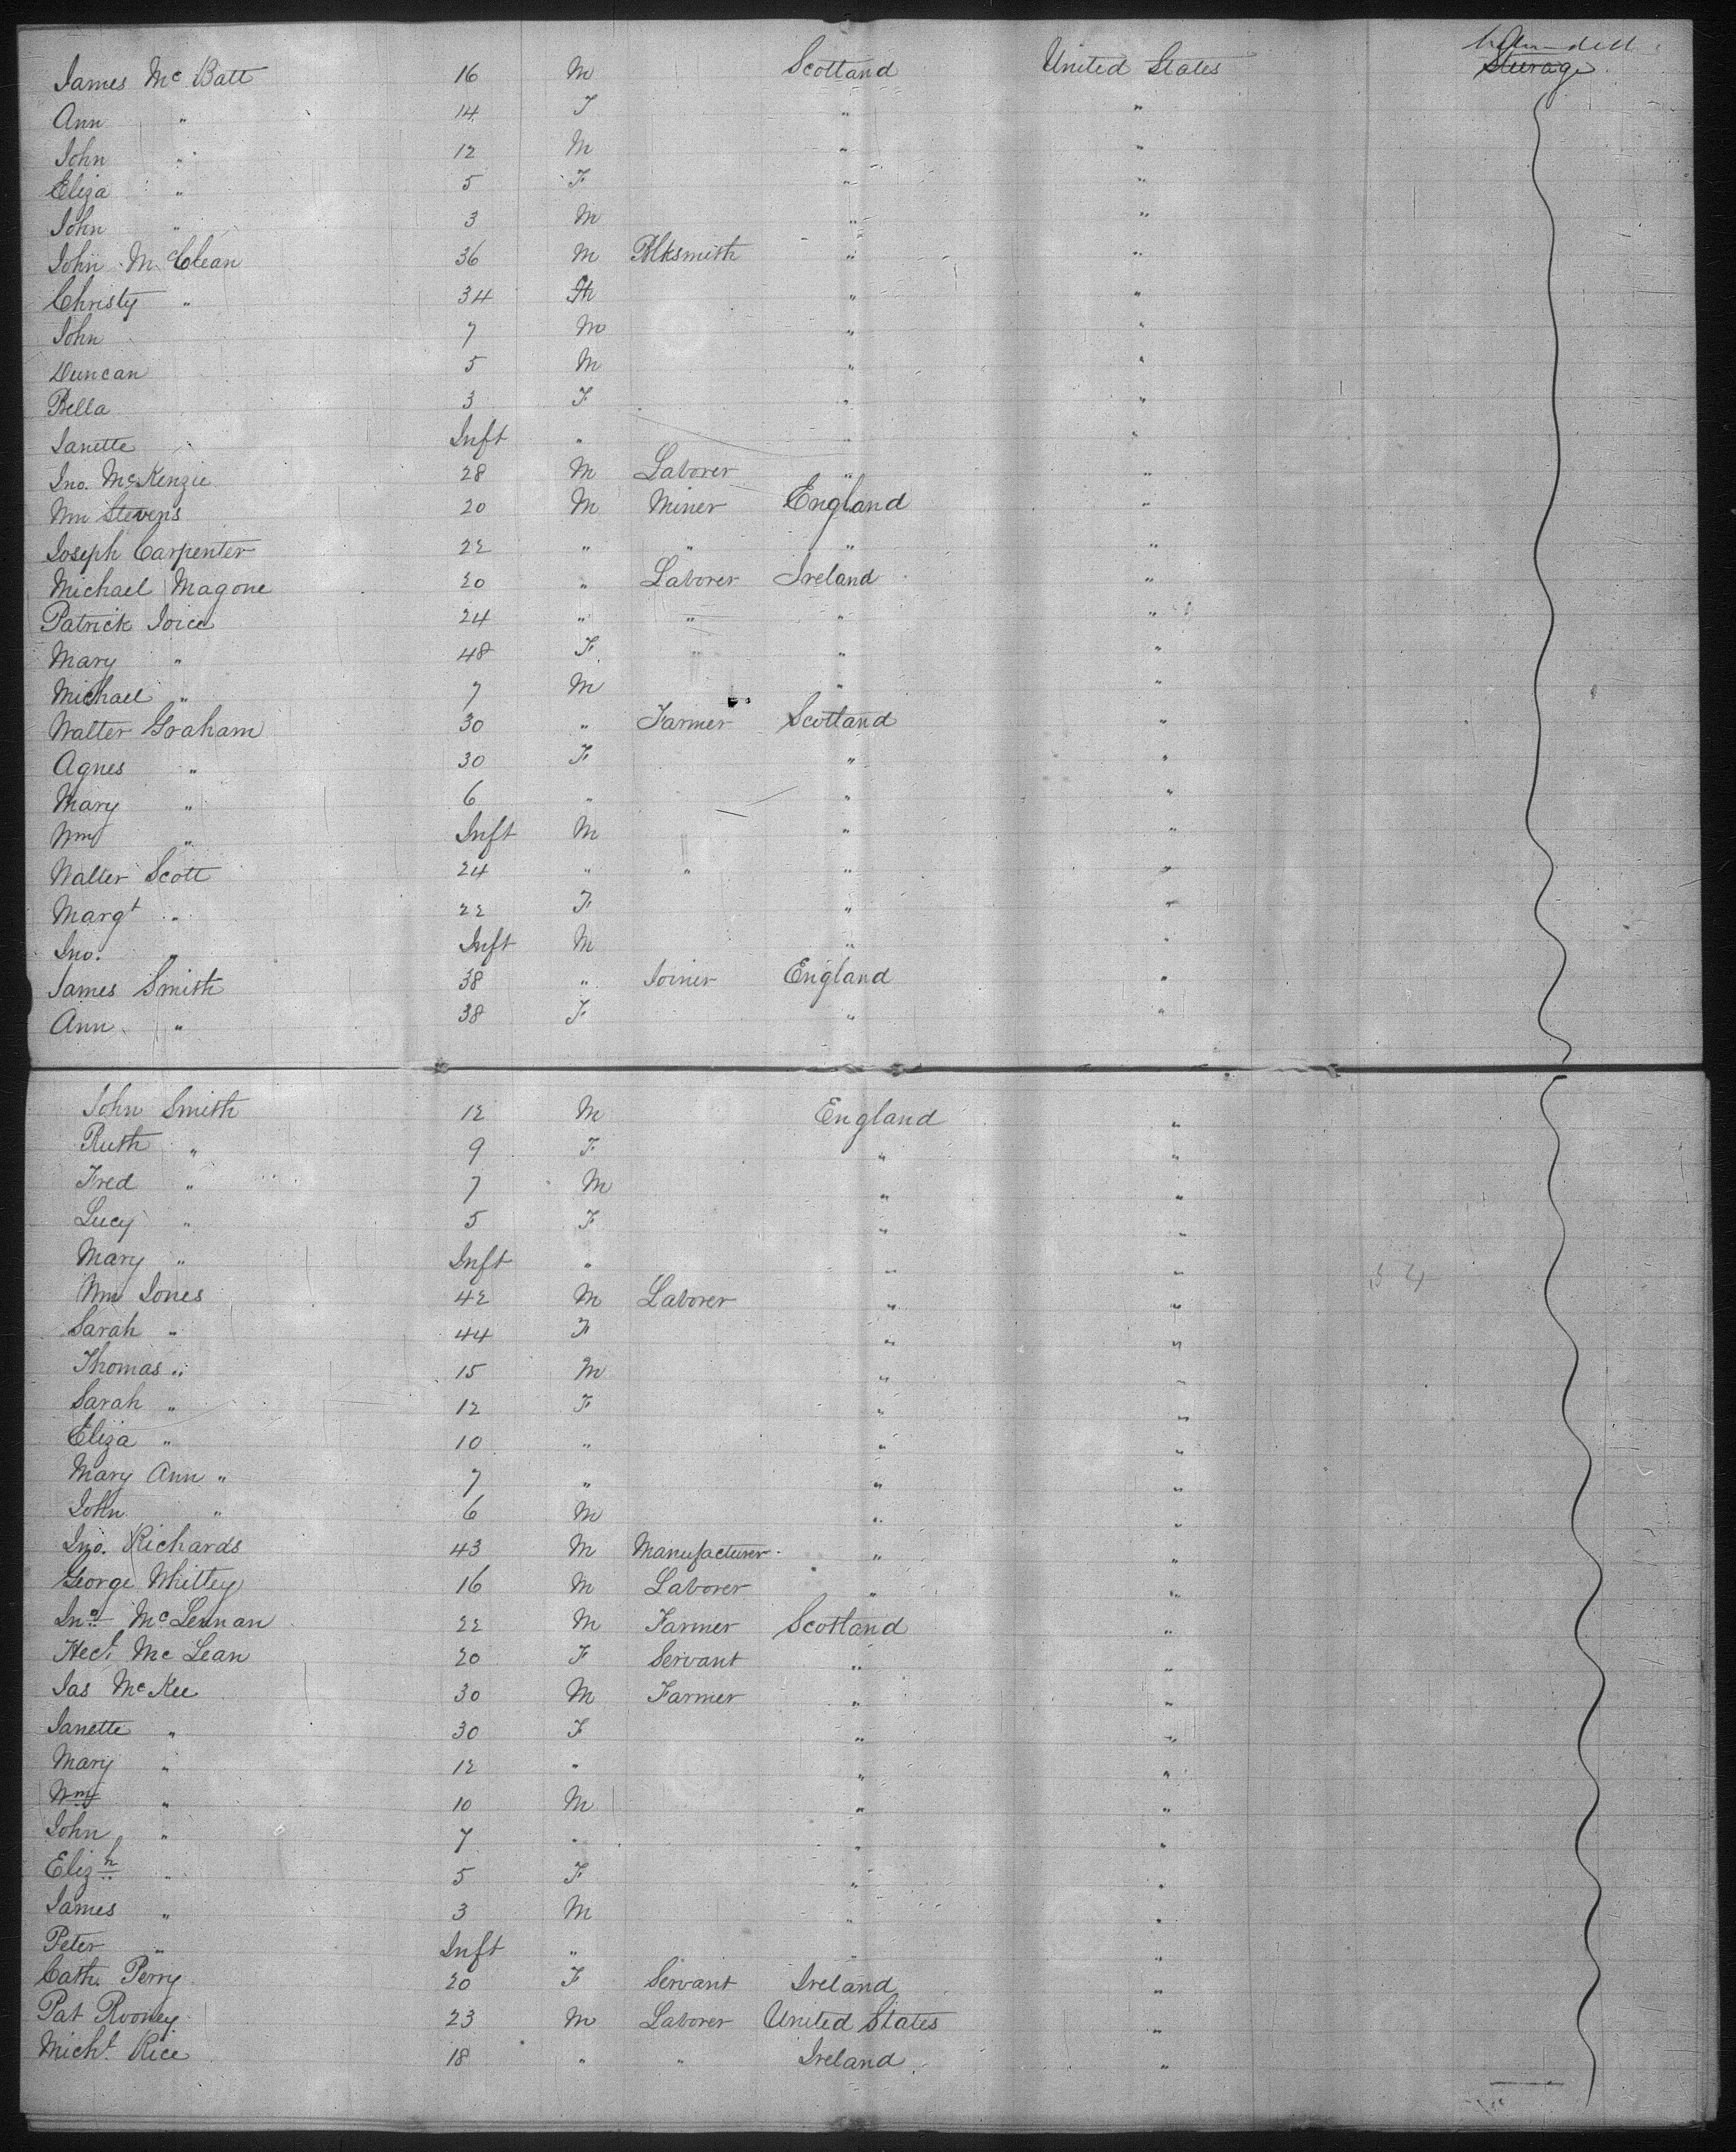 James Mc Batt 16 M Scotland United States Steerage
Ann " 14 F " "
John " 12 M " "
Eliza " 5 F " "
John " 3 M " "
John McClean 36 M Blksmith " "
Christy " 34 " "
John 7 M " "
Duncan 5 M " "
Bella 3 F " "
Janette Inft " " "
Jno. McKenzie 28 M Laborer " "
Wm Stevens 20 M Miner England "
Joseph Carpenter 22 " " " "
Michael Magone 20 " Laborer Ireland "
Patrick Joice 24 " " " "
Mary " 48 F " " "
Michael " 7 M " "
Walter Graham 30 " Farmer Scotland "
Agnes " 30 F " "
Mary " 6 " " "
Wm " Inft M " "
Walter Scott 24 " " " "
Margt " 22 F " "
Jno. " Inft M " "
James Smith 38 " Joiner England "
Ann " 38 F " "
John Smith 12 M England "
Ruth " 9 F " "
Fred " 7 M " "
Lucy " 5 F " "
Mary " Inft " " "
Wm Jones 42 M Laborer " "
Sarah " 44 F " "
Thomas " 15 M " "
Sarah " 12 F " "
Eliza " 10 " " "
Mary Ann " 7 " " "
John " 6 M " "
Jno. Richards 43 M Manufacturer " "
George Whitley 16 M Laborer " "
Jno McLennan 22 M Farmer Scotland "
Hect. Mc Lean 20 F Servant " "
Jas McKee 30 M Farmer " "
Janette " 30 F " "
Mary " 12 " " "
Wm " 10 M " "
John " 7 " " "
Elizh " 5 F " "
James " 3 M " "
Peter " Inft " " "
Cath. Perry 20 F Servant Ireland "
Pat Rooney 23 M Laborer United States "
Michl. Rice 18 " " Ireland "